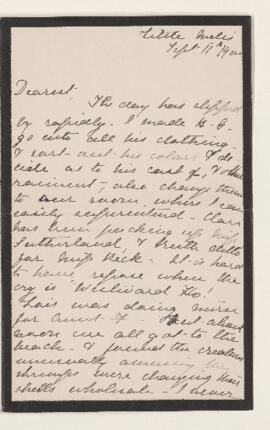 Little Metis
Sept 11th 190
Dearest,
The day has slipped
by rapidly. I made G. E.
go into all his clothing.
& sort out his colours & de
cide as to his cast of, & other
raiment, also change them
to our room where I can
easily superintend - Clare
has been packing up Miss
Sutherland, & Ruth ditto
for Miss Dick - It is hard
to have repose when the
cry is Westward Ho!
Lois was doing
for Aunt but about
noon we all got to the
beach - & found the creatures
unusually amusing the
shrimps were changing their
shells wholesale - I never